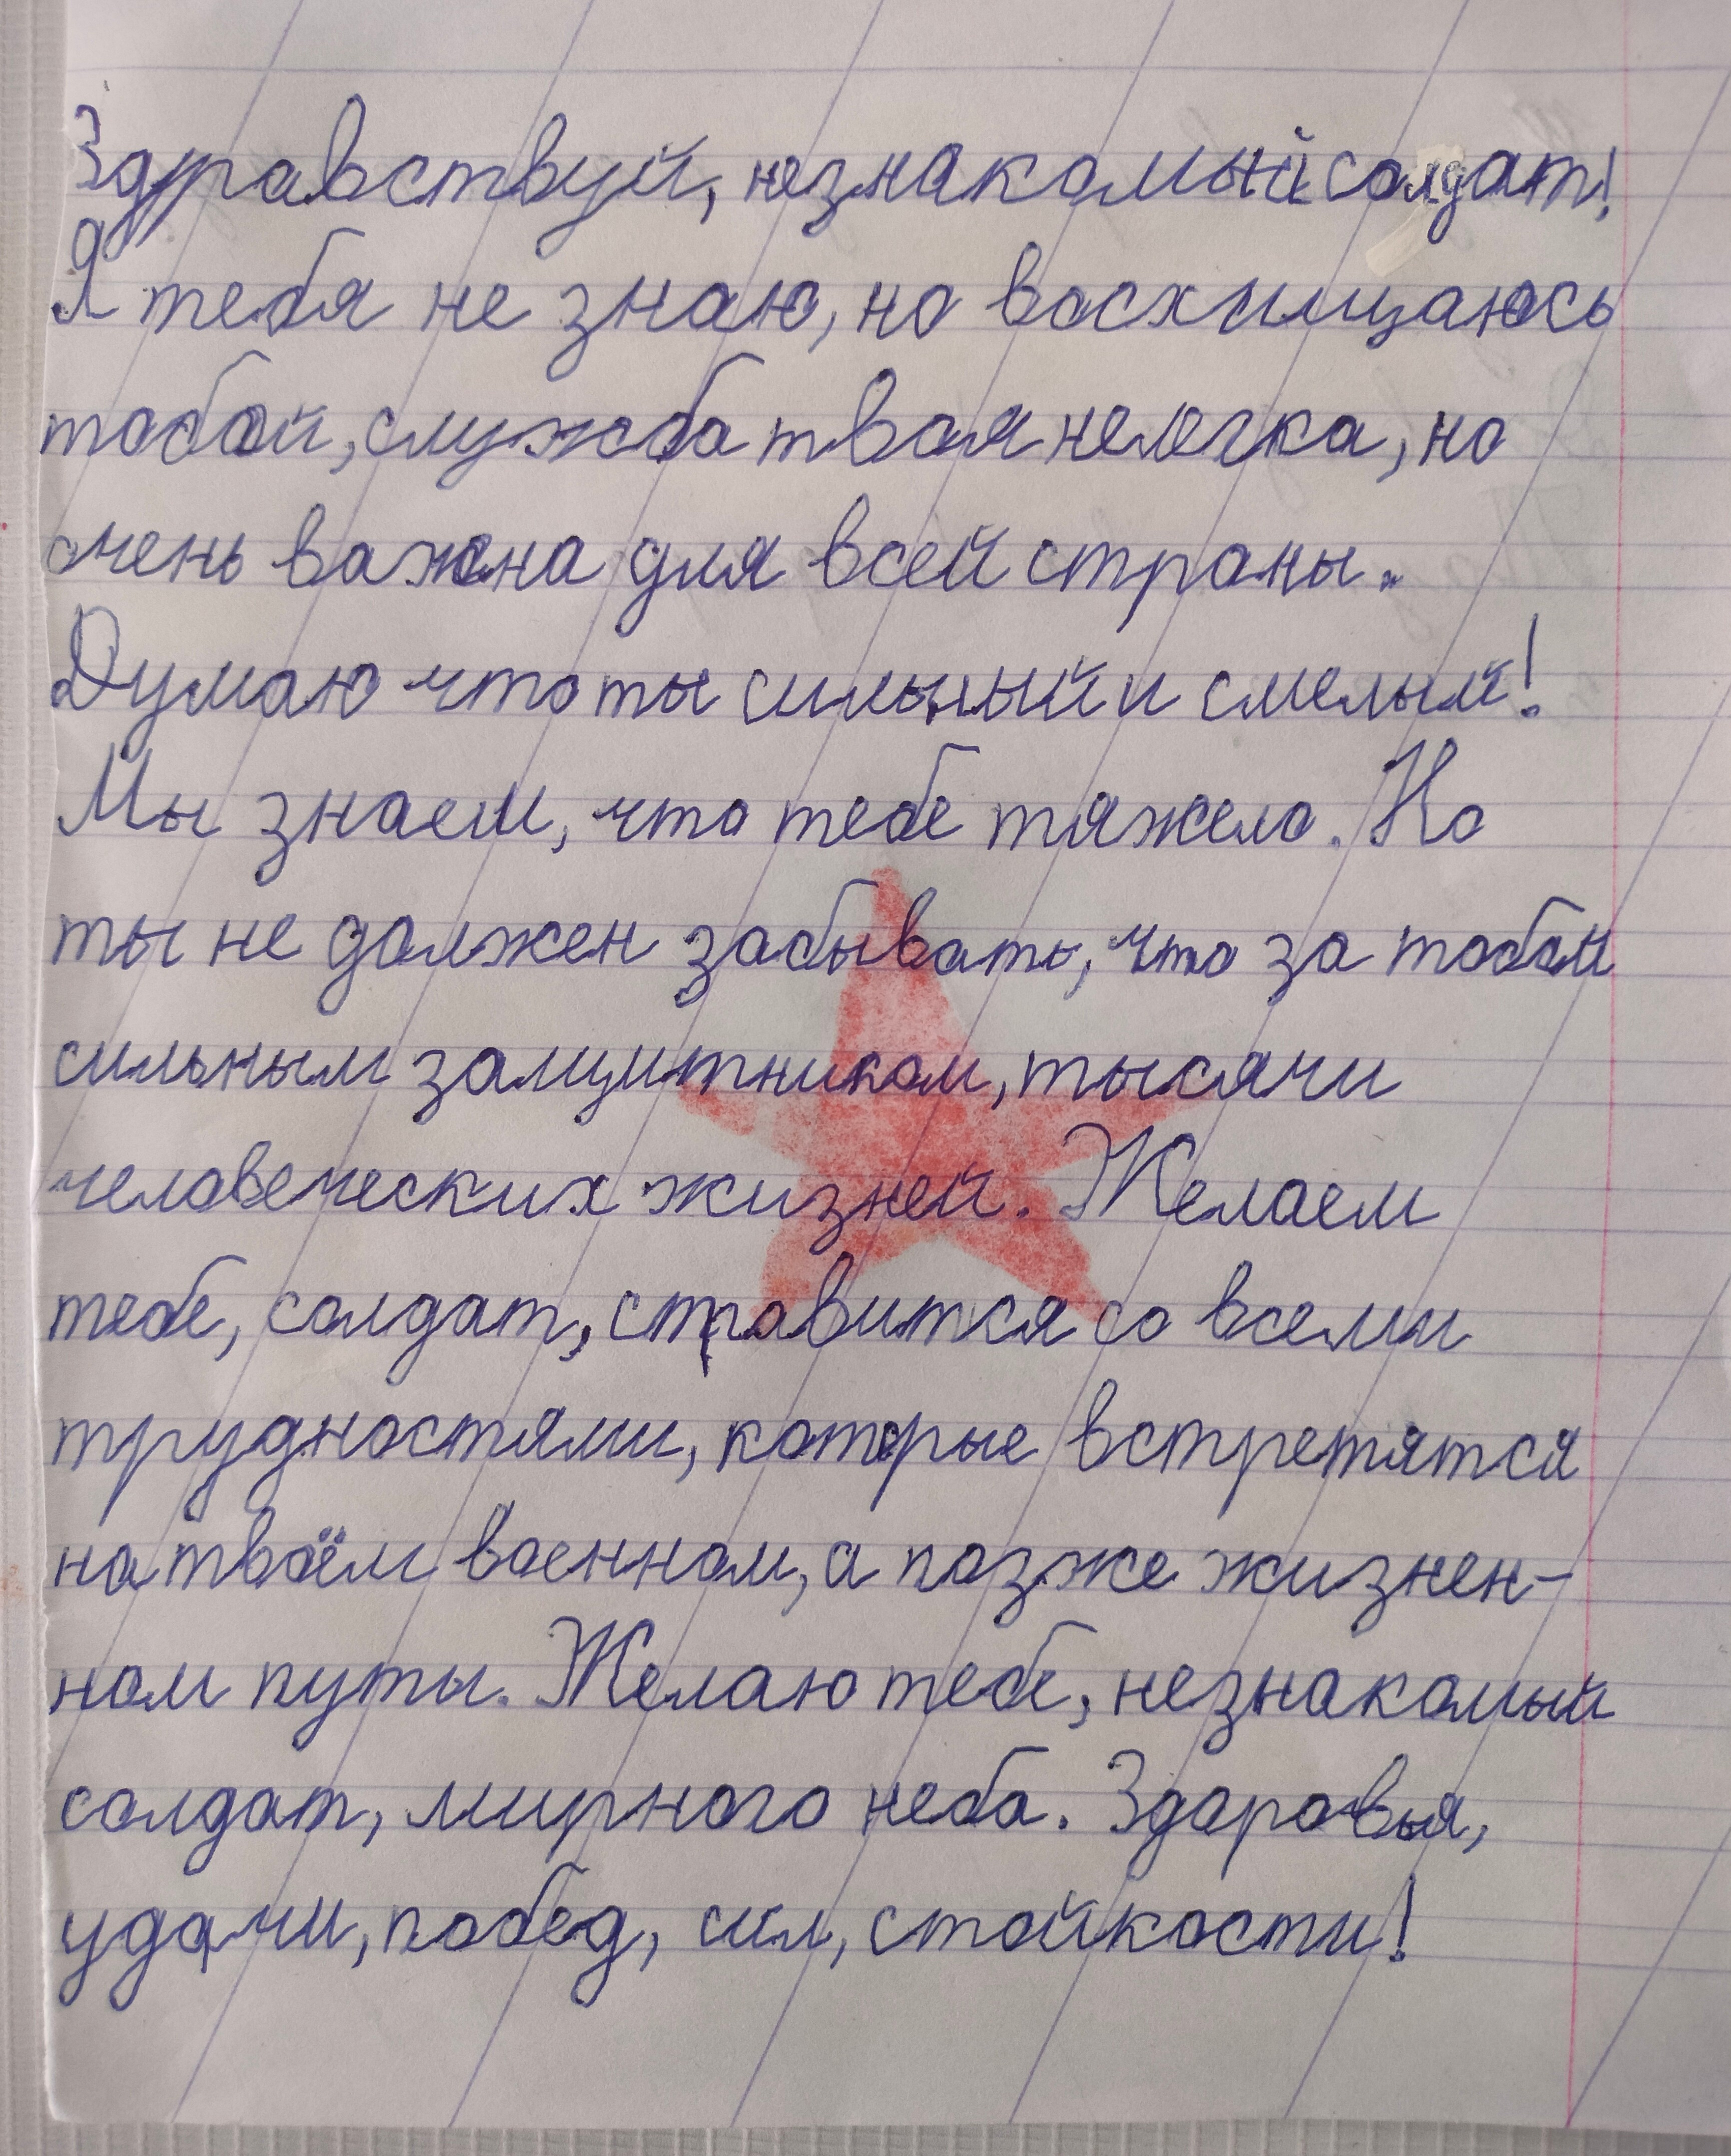 Здравствуй, незнакомый солдат!
Я тебя не знаю, но восхищаюсь
тобой, служба твоя нелегка, но
очень важна для всей страны.
Думаю что ты сильный и смелый!
Мы знаем, что тебе тяжело. Но
ты не должен забывать, что за тобой
сильным защитником, тысячи
человеческих жизней. Желаем
тебе, солдат, стравится со всеми
трудностями, которые встретятся
на твоём военном, а позже жизнен-
ном путы. Желаю тебе, незнакомый
солдат, мирного неба. Здоровья,
удачи, побед, сил, стойкости!